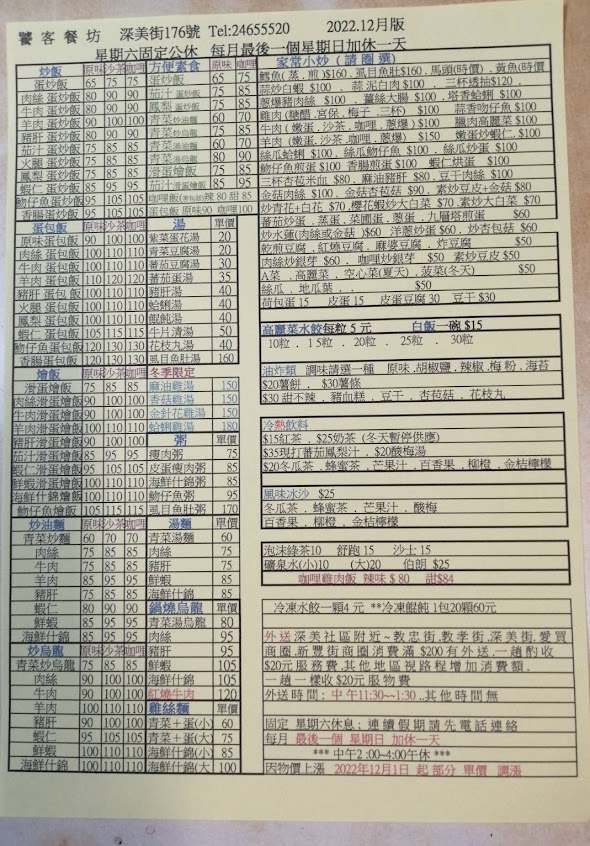 饕客餐坊 深美街176號 Tel:24655520 2022.12月版
星期六固定公休 每月最後一個星期日加休一天
炒飯 原味 沙茶 咖哩
蛋炒飯 65 75 75
肉絲 蛋炒飯 80 90 90
牛肉 蛋炒飯 80 90 90
羊肉 蛋炒飯 90 100 100
豬肝 蛋炒飯 80 90 90
茄汁 蛋炒飯 75 85 85
火腿 蛋炒飯 75 85 85
鳳梨 蛋炒飯 75 85 85
蝦仁 蛋炒飯 85 95 95
魩仔魚蛋炒飯 95 105 105
香腸蛋炒飯 95 105 105
蛋包飯 原味 沙茶 咖哩
原味蛋包飯 90 100 100
肉絲 蛋包飯 100 110 110
牛肉 蛋包飯 100 110 110
羊肉 蛋包飯 110 120 120
豬肝 蛋包飯 100 110 110
火腿 蛋包飯 100 110 110
鳳梨 蛋包飯 100 110 110
蝦仁 蛋包飯 105 115 115
魩仔魚蛋包飯 120 130 130
香腸蛋包飯 120 130 130
燴飯 原味 沙茶 咖哩
滑蛋燴飯 75 85 85
肉絲滑蛋燴飯 90 100 100
牛肉滑蛋燴飯 90 100 100
羊肉滑蛋燴飯 100 110 110
豬肝滑蛋燴飯 90 100 100
茄汁滑蛋燴飯 85 95 95
蝦仁滑蛋燴飯 95 105 105
鮮蝦滑蛋燴飯 100 110 110
海鮮什錦燴飯 100 110 110
魩仔魚燴飯 105 115 115
炒油麵 原味 沙茶 咖哩
青菜炒麵 60 70 70
肉絲 75 85 85
牛肉 75 85 85
羊肉 85 95 95
豬肝 75 85 85
蝦仁 80 90 90
鮮蝦 85 95 95
海鮮什錦 85 95 95
炒烏龍 原味 沙茶 咖哩
青菜炒烏龍 75 85 85
肉絲 90 100 100
牛肉 90 100 100
羊肉 100 110 110
豬肝 90 100 100
蝦仁 95 105 105
鮮蝦 100 110 110
海鮮什錦 100 110 110
方便素食 原味 咖哩
蛋炒飯 65 75
茄汁 蛋炒飯 75 85
鳳梨 蛋炒飯 75 85
青菜炒油麵 60 70
青菜炒烏龍 75 85
青菜湯油麵 60 70
青菜湯烏龍 80 90
滑蛋燴飯 75 85
茄汁滑蛋燴飯 85 95
咖哩飯 辣 80 甜 85
蛋包飯 原味90 咖哩100
湯
紫菜蛋花湯 20
青菜豆腐湯 20
番茄豆腐湯 30
番茄蛋湯 35
豬肝湯 40
蛤蜊湯 40
餛飩湯 40
牛片清湯 50
花枝丸湯 40
虱目魚肚湯 160
冬季限定
麻油雞湯 150
香菇雞湯 150
金針花雞湯 150
蛤蜊雞湯 180
粥 單價
瘦肉粥 75
皮蛋瘦肉粥 85
海鮮什錦粥 85
魩仔魚粥 95
虱目魚肚粥 170
湯麵 單價
青菜湯麵 60
肉絲 75
牛肉 75
鮮蝦 85
海鮮什錦 85
鍋燒烏龍 單價
青菜湯烏龍 80
肉絲 95
豬肝 95
鮮蝦 105
海鮮什錦 105
紅燒牛肉 120
雞絲麵 單價
青菜+蛋(小) 60
青菜+蛋(大) 75
海鮮什錦(小) 85
海鮮什錦(大) 100
家常小炒 ( 請 圈 選 )
鱈魚(蒸.煎)$160 .虱目魚肚$160 .馬頭(時價) . 黃魚(時價)
蒜炒白蝦 $100 . 蒜泥白肉 $100 . 三杯透抽$120 .
蔥爆豬肉絲 $100 . 薑絲大腸 $100 . 塔香蛤蜊 $100
雞肉(糖醋.宮保.梅子.三杯) $100 . 蒜香吻仔魚 $100
牛肉(嫩蛋.沙茶.咖哩.蔥爆) $100 . 臘肉高麗菜 $100
羊肉(嫩蛋.沙茶.咖哩.蔥爆) $150 . 嫩蛋炒蝦仁. $100
絲瓜蛤蜊 $100 . 絲瓜魩仔魚 $100 . 絲瓜炒蛋 $100
魩仔魚煎蛋 $100 香腸煎蛋 $100 . 蝦仁烘蛋 $100
三杯杏菇米血 $80 . 麻油豬肝 $80 . 豆干肉絲 $100
金菇肉絲 $100 . 金菇杏菇菇 $90 . 素炒豆皮+金菇 $80
炒青花+白花 $70 .櫻花蝦炒大白菜 $70 .素炒大白菜 $70
蕃茄炒蛋 . 蒸蛋 . 菜圃蛋 . 蔥蛋 . 九層塔煎蛋 $60
炒水蓮(肉絲或金菇 )$60 洋蔥炒蛋 $60 . 炒杏包菇 $60
乾煎豆腐 . 紅燒豆腐 . 麻婆豆腐 . 炸豆腐 $50
肉絲炒銀芽 $60 . 咖哩炒銀芽 $50 素炒豆皮 $50
A菜 . 高麗菜 . 空心菜(夏天) . 菠菜(冬天) $50
絲瓜 . 地瓜葉 . . $50
荷包蛋 15 皮蛋 15 皮蛋豆腐 30 豆干 $30
高麗菜水餃每粒 5 元 白飯一碗 $15
10粒 . 15粒 . 20粒 . 25粒 . 30粒
油炸類 調味請選一種 原味 .胡椒鹽 . 辣椒 . 梅粉 . 海苔
$20薯餅 . $30薯條
$30 甜不辣 . 豬血糕 . 豆干 . 杏苞菇 . 花枝丸
冷熱飲料
$15紅茶 . $25奶茶 (冬天暫停供應)
$35現打蕃茄鳳梨汁 . $20酸梅湯
$20冬瓜茶 . 蜂蜜茶 . 芒果汁 . 百香果 . 柳橙 . 金桔檸檬
風味冰沙 $25
冬瓜茶 . 蜂蜜茶 . 芒果汁 . 酸梅
百香果 . 柳橙 . 金桔檸檬
泡沫綠茶10 舒跑 15 沙士 15
礦泉水(小)10 (大)20 伯朗 $25
咖哩雞肉飯 辣味 $ 80 甜$84
冷凍水餃一顆4 元 **冷凍餛飩 1包20顆60元
外送 深美社區附近~教忠街.教孝街.深美街.愛買
商圈.新豐街商圈消費滿 $200有外送.一趟酌收
$20元服務費.其他地區視路程增加消費額.
一趟一樣收$20元服物費
外送時間: 中 午11:30~~1:30 ..其他時間無
固定 星期六休息; 連續假期請先電話連絡
每月 最後一個 星期日 加休一天
*** 中午2 :00~4:00午休 ***
因物價上漲 2022年12月1日 起部分 單價 調漲